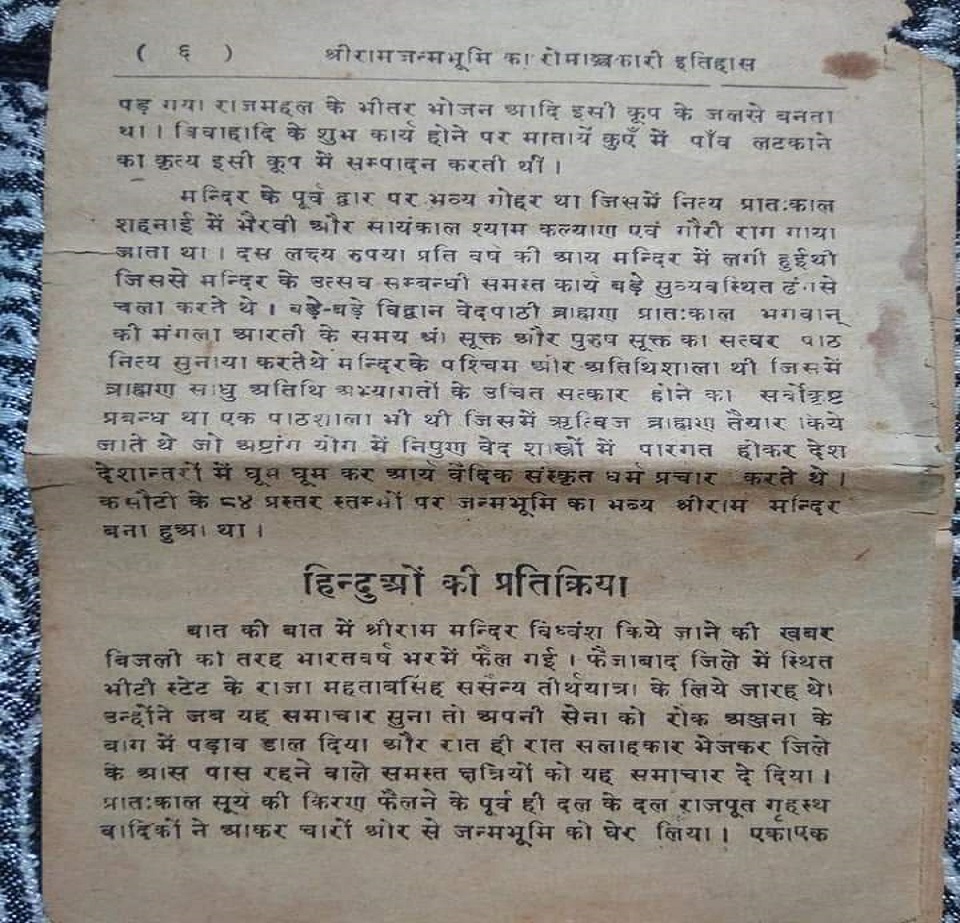 ( ६ ) श्रीरामजन्मभूमि का रोमाञ्चकारी इतिहास
पड़ गया राजमहल के भीतर भोजन आदि इसी कूप के जलसे बनता
था । विवाहादि के शुभ कार्य होने पर मातायें कुएँ में पाँव लटकाने
का कृत्य इसी कूप में सम्पादन करती थीं ।
मन्दिर के पूर्व द्वार पर भव्य गोहर था जिसमें नित्य प्रातःकाल
शहनाई में भैरवी और सायंकाल श्याम कल्याण एवं गौरी राग गाया
जाता था । दस लक्ष्य रुपया प्रति वर्ष की आय मन्दिर में लगी हुईथी
जिससे मन्दिर के उत्सव सम्बन्धी समस्त कार्य बड़े सुव्यवस्थित ढंगसे
चला करते थे । बड़े-बड़े विद्वान वेदपाठी ब्राह्मण प्रातःकाल भगवान्
की मंगला आरती के समय श्री सूक्त और पुरुष सूक्त का सत्वर पाठ
नित्य सुनाया करतेथे मन्दिरके पश्चिम ओर अतिथिशाला थी जिसमें
ब्राह्मण साधु अतिथि अभ्यागतों के उचित सत्कार होने का सर्वोकृष्ट
प्रबन्ध था एक पाठशाला भी थी जिसमें ऋत्विज ब्राह्मण तैयार किये
जाते थे जो अष्टांग योग में निपुण वेद शास्त्रों में पारगत होकर देश
देशान्तरों में घूम घूम कर आर्य वैदिक संस्कृत धर्म प्रचार करते थे ।
कसौटी के ८४ प्रस्तर स्तम्भों पर जन्मभूमि का भव्य श्रीराम मन्दिर
बना हुआ था ।
हिन्दुओं की प्रतिक्रिया
बात की बात में श्रीराम मन्दिर विध्वंश किये जाने की खबर
बिजली की तरह भारतवर्ष भरमें फैल गई । फैजाबाद जिले में स्थित
भीटी स्टेट के राजा महताबसिंह ससैन्य तीर्थयात्रा के लिये जारहे थे।
उन्होंने जब यह समाचार सुना तो अपनी सेना को रोक अञ्जना के
बाग में पड़ाव डाल दिया और रात ही रात सलाहकार भेजकर जिले
के आस पास रहने वाले समस्त क्षत्रियों को यह समाचार दे दिया ।
प्रातःकाल सूर्य की किरण फैलने के पूर्व ही दल के दल राजपूत गृहस्थ
बादिकों ने आकर चारों ओर से जन्मभूमि को घेर लिया । एकाएक